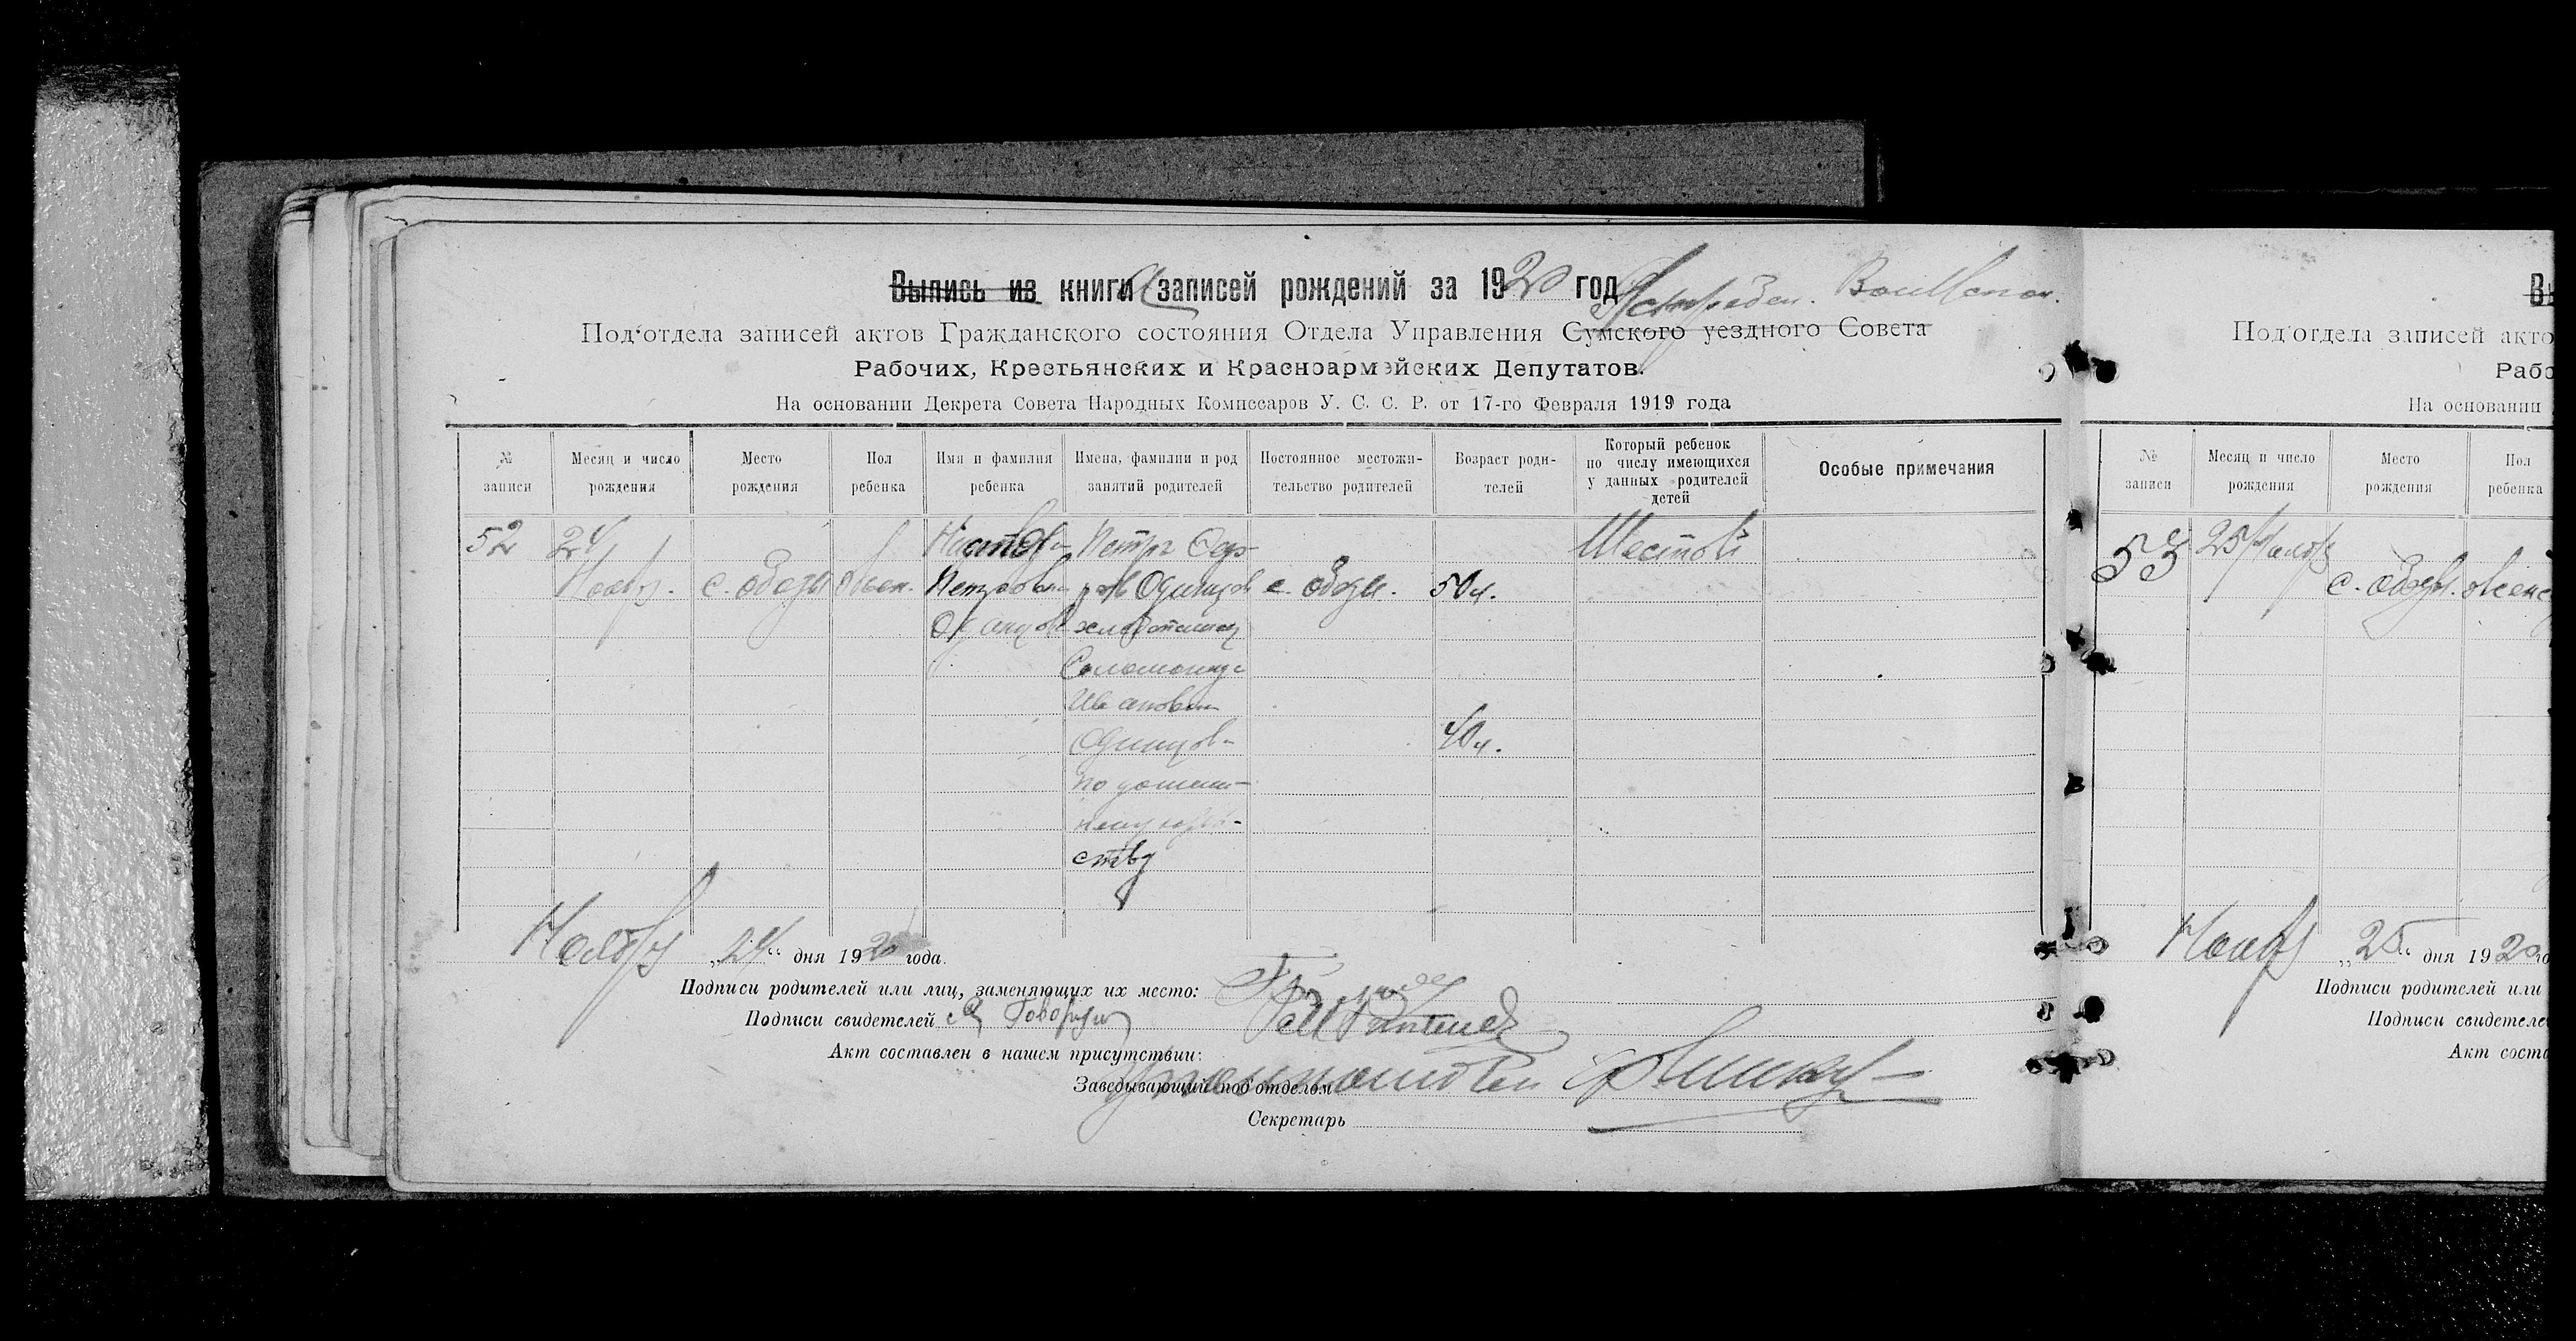 Выпись из книги записей рождений за 1920 год
Под'отдела записей актов Гражданского состояния Отдела Управления Сумского уездного Совета
Рабочих, Крестьянских и Красноармейских Депутатов.
На основании Декрета Совета Народных Комиссаров У. С. С. Р. от 17-го Февраля 1919 года
№ записи
Месяц и число рождения
Место рождения
Пол ребенка
Имя и фамилия ребенка
Имена, фамилии и род занятий родителей
Постоянное местожи-тельство родителей
Возраст роди-телей
Который ребенок по числу имеющихся у данных родителей детей
Особые примечания
52 24 Петр Шестой
Ноябр. с. Ободы жен. Петровна Одинцов с. Ободы. 50 л.
Соломонида
Ивановна
Одинцова 40 л.
по домаш-
нему хозяй-
ству
Ноября „24“ дня 1920 года.
Подписи родителей или лиц, заменяющих их место:
Подписи свидетелей
Акт составлен в нашем присутствии:
Заведывающий под'отделом
Секретарь
Под'отдела записей акто
Рабо
На основании
№ записи
Месяц и число рождения
Место рождения
Пол ребенка
53 25 Ноябр
с. Ободы. женс
Ноябр „25“ дня 1920
Подписи родителей или
Подписи свидетеле
Акт соста